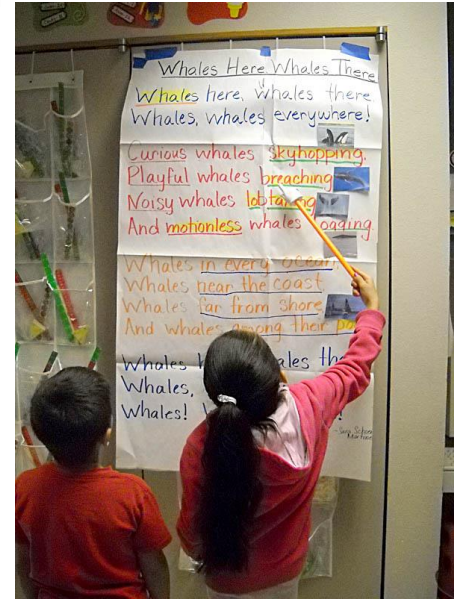 Whales Here Whales There
Whales here, whales there
Whales, whales everywhere!
Curious whales skyhopping.
Playful whales breaching
Noisy whales lobtailing
And motionless whales logging.
Whales in every ocean.
Whales near the coast
Whales far from shore
And whales among their
Whales
Whales,
Whales!